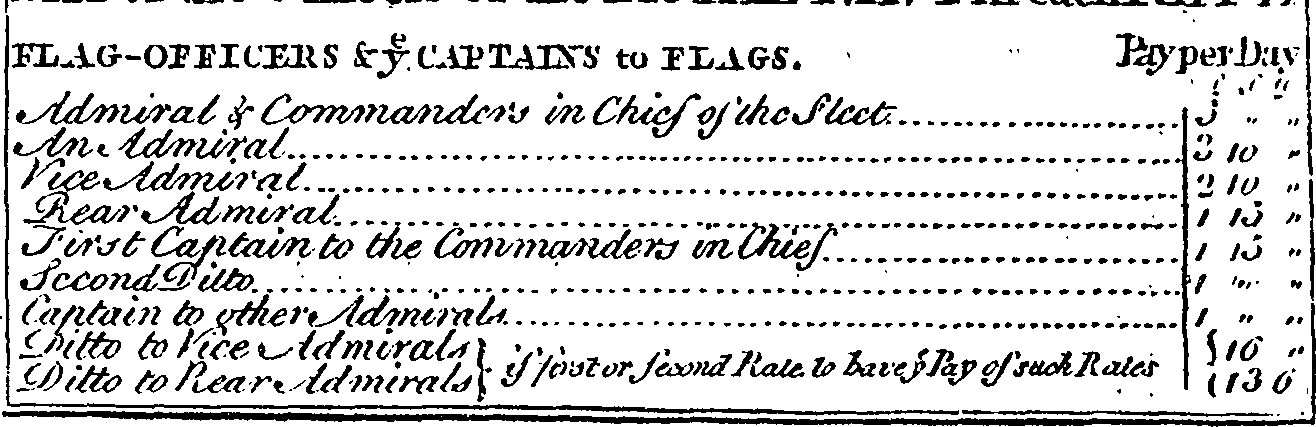 FLAG-OFFICERS & yͤ CAPTAINS to FLAGS. Pay per Day
£ s d
Admiral & Commanders in Chief of the Fleet 5 „ „
An Admiral 3 10 „
Vice Admiral 2 10 „
Rear Admiral 1 15 „
First Captain to the Commanders in Chief 1 15 „
Second Ditto 1 „ „
Captain to other Admirals 1 „ „
Ditto to Vice Admirals } if first or second Rate to have yͤ Pay of such Rates { 16 „
Ditto to Rear Admirals } { 13 6